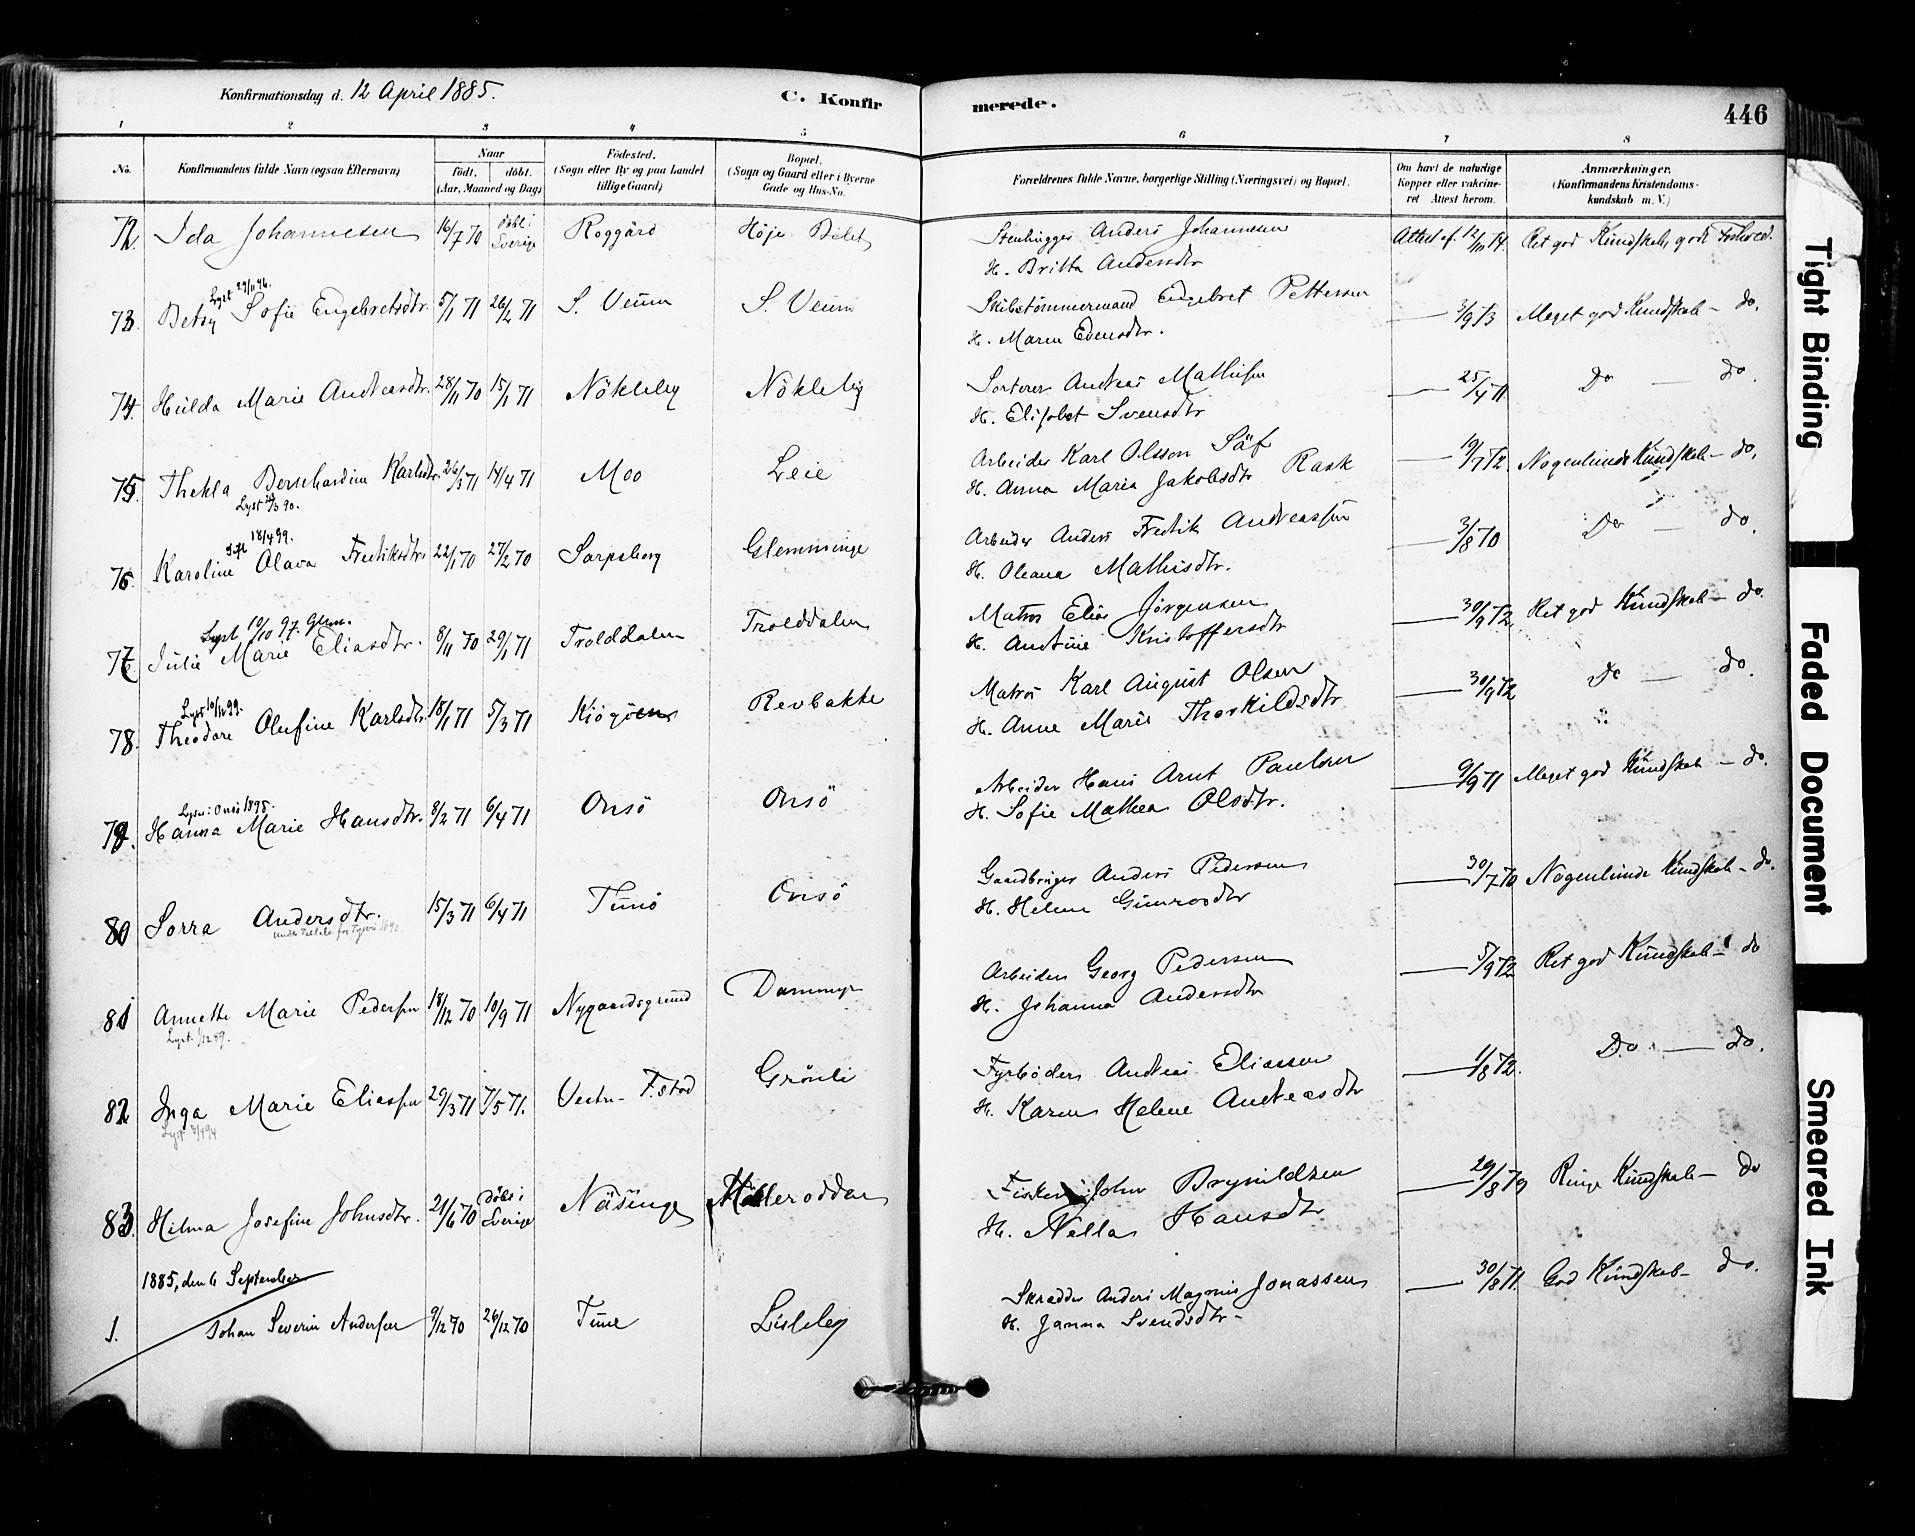 Konfirmationsdag d. 12 April 1885.
C. Konfir
merede.
446
1 2 3 4 5 6 7 8
No.
Konfirmandens fulde Navn (ogsaa Efternavn)
Naar
født. døbt.
(Aar, Maaned og Dag)
Fødested.
(Sogn eller By og paa Landet
tillige Gaard)
Bopæl.
(Sogn og Gaard eller i Byerne
Gade og Hus-No.
Forældrenes fulde Navne, borgerlige Stilling (Næringsvei) og Bopæl.
Om havt de naturlige
Kopper eller vakcine-
ret Attest herom.
Anmærkninger.
(Konfirmandens Kristendoms-
kundskab m. V.)
72. Ida Johannesen 16/7 70 døbt i Sverige Roggård Höje Stenhugger Anders Johannesen Attest af 12/ 74. Ret god Kundskab, god Forhold.
H. Britta Andersdtr
Lyst 29/11 96.
73. Betsy Sofie Engebretsdtr. 5/1 71 26/2 71 S. Veum S. Veum Skibstömmermand Engebret Pettersen — 3/9 73 Meget god Kundskab – do.
H. Maren Evensdtr.
74. Hulda Marie Andreasdtr. 28/11 70 15/1 71 Nökleby Nökleby Sorterer Andreas Mathisen — 25/4 71 Do — do.
H. Elisabet Svensdtr
75. Thekla Bernhardine Karlsdtr. 26/3 71 14/4 71 Moo Leie Arbeider Karl Olsson Säf — 19/7 72 Nogenlunde Kundskab – do.
Lyst /3 90.
H. Anna Maria Jakobsdtr Rask
18/4 99.
76. Karoline Olava Fredriksdtr. 22/1 70 27/2 70 Sarpsborg Glemminge Arbeider Anders Fredrik Andreassen — 3/8 70 Do — do.
H. Oleana Mathisdtr.
Lyst 10/10 97. Glem.
77. Julie Marie Eliasdtr. 8/11 70 29/1 71 Trolddalen Trolddalen Matros Elias Jörgensen — 30/9 72 Ret god Kundskab – do.
H. Andrine Kristoffersdtr
Lyst 10/12 99.
78. Theodore Olufine Karlsdtr. 18/1 71 5/3 71 Kjögöen Revbakke Matros Karl August Olsen — 30/9 72 Do — do.
H. Anne Marie Thorkildsdtr
Lyst i Onsö 1895.
79. Hanna Marie Hansdtr. 8/2 71 6/4 71 Onsö Onsö Arbeider Hans Arnt Paulsen — 9/9 71 Meget god Kundskab – do.
H. Sofie Mathea Olsdtr.
80. Sorra Andersdtr. 15/3 71 6/4 71 Tunö Onsö Gaardbruger Anders Pedersen — 30/7 70 Nogenlunde Kundskab – do.
H. Helene Gunrosdtr
81. Annette Marie Pedersen 18/12 70 10/9 71 Nygaardsgrund Dammyr Arbeider Georg Pedersen — 5/9 72 Ret god Kundskab – do
H. Johanna Andersdtr
82. Inga Marie Eliassen 29/3 71 7/5 71. Vestre F.stad Grönli Fyrböder Andreas Eliassen — 1/8 72. Do — do.
H. Karen Helene Andreasdtr
83. Hilma Josefine Johnsdtr. 21/6 70 Döbt i Sverige Näsinge Möllerodden Fisker John Brynildsen — 29/8 79 Ringe Kundskab – do
H. Nella Hansdtr
1885, den 6 September
1. Johan Severin Andersen 9/12 70 26/12 70 Tune Lisleby Skrædder Anders Magnus Jonassen — 30/8 71. God Kundskab – do.
H. Janna Svendsdtr.
Tight Binding
Faded Document
Smeared Ink